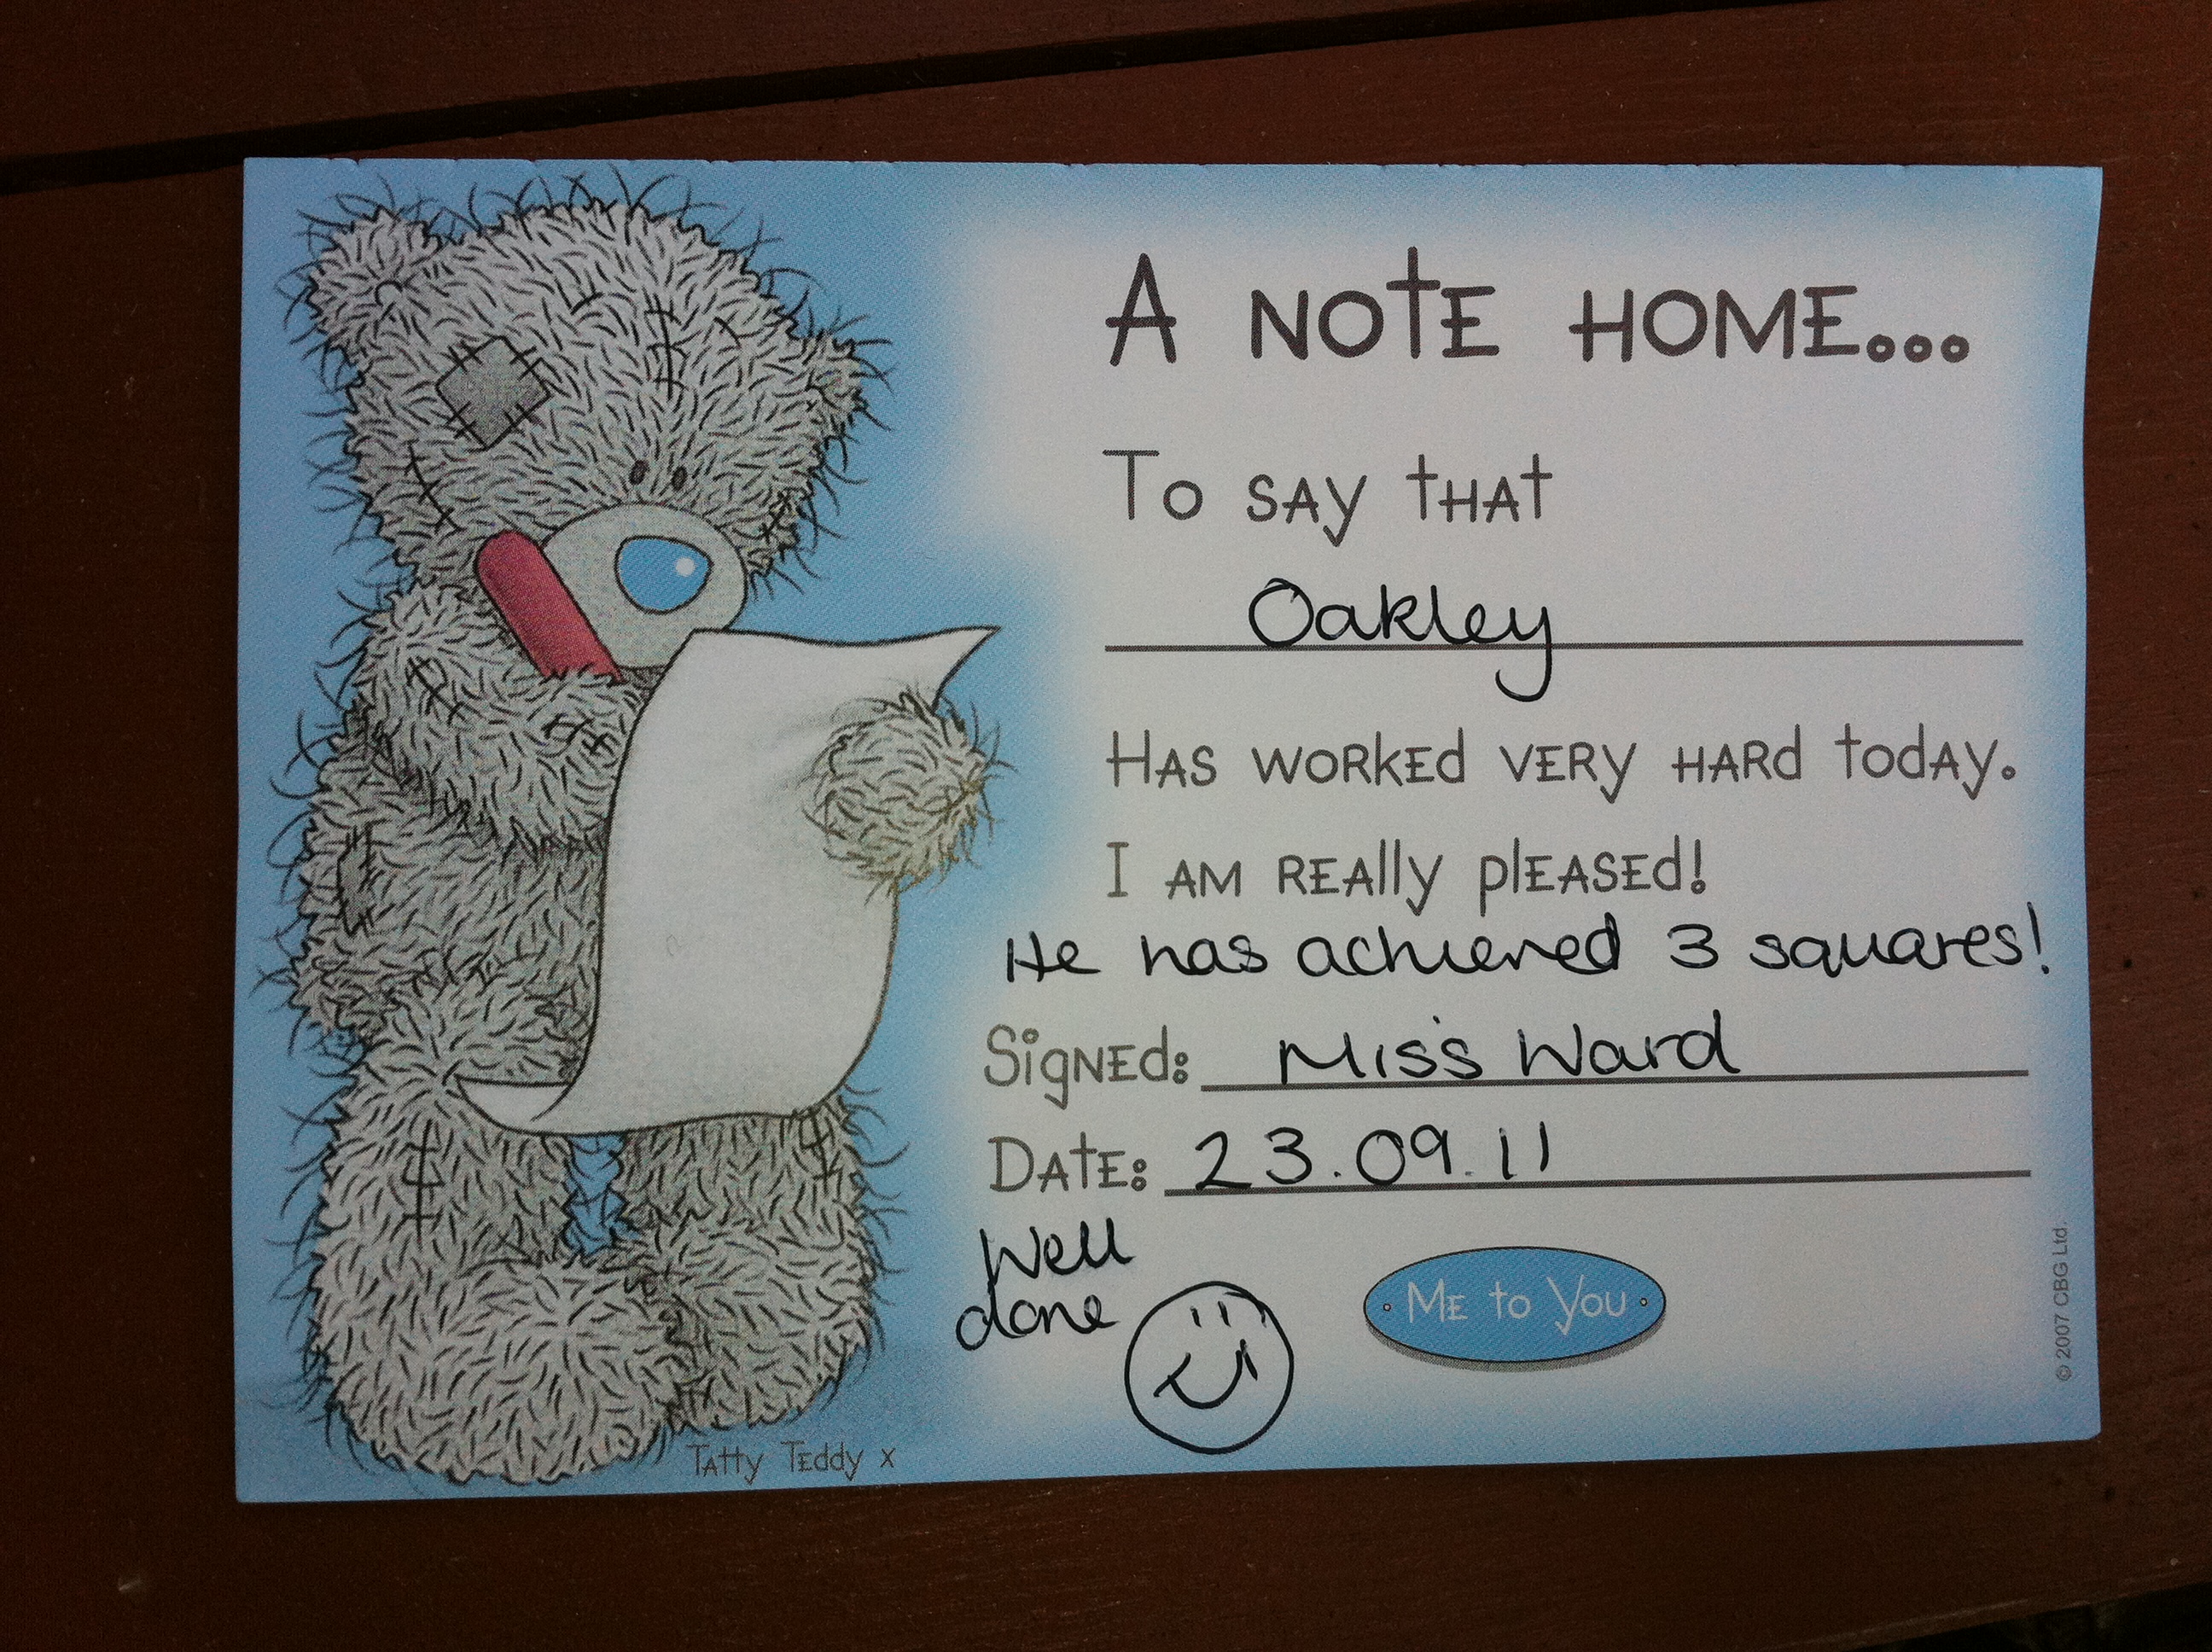 A NOTE HOME...
To say that
Oakley
Has worked very hard today.
I am really pleased!
He has achieved 3 squares!
Signed: Miss Ward
Date: 23.09.11
Well
done
Me to You
Tatty Teddy x
© 2007 CBG Ltd.